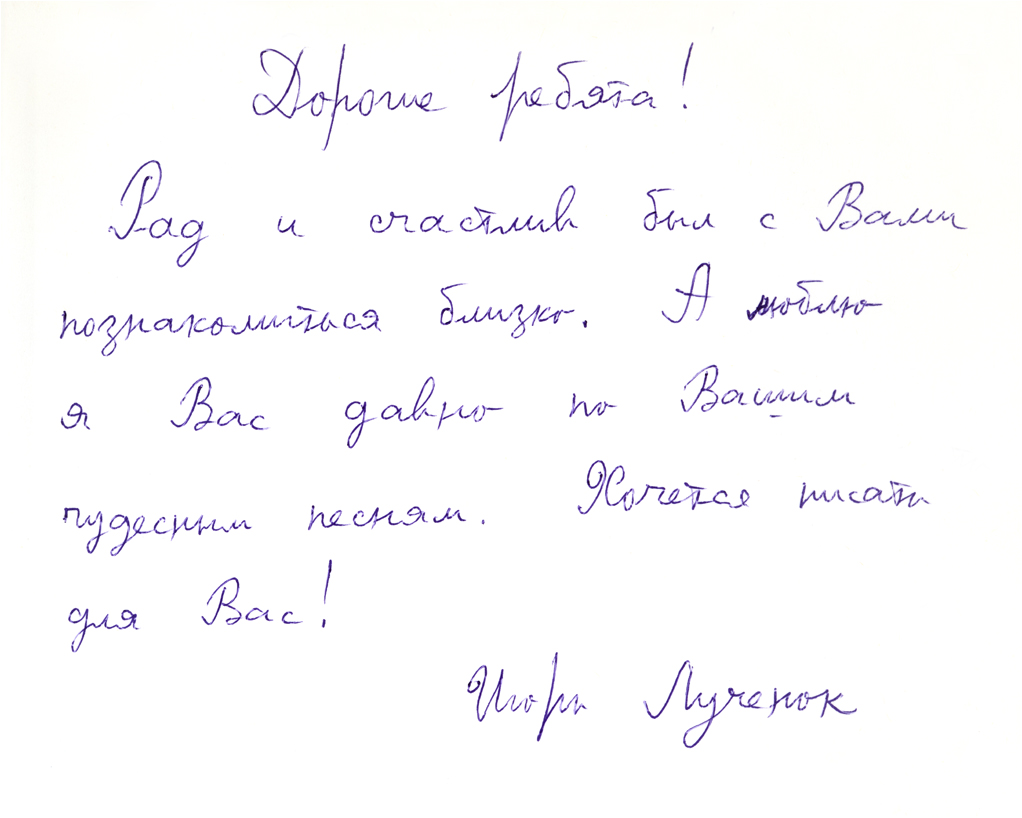 Дорогие ребята!
Рад и счастлив был с Вами
познакомиться близко. А люблю
я Вас давно по Вашим
чудесным песням. Хочется писать
для Вас!
Игорь Лученок